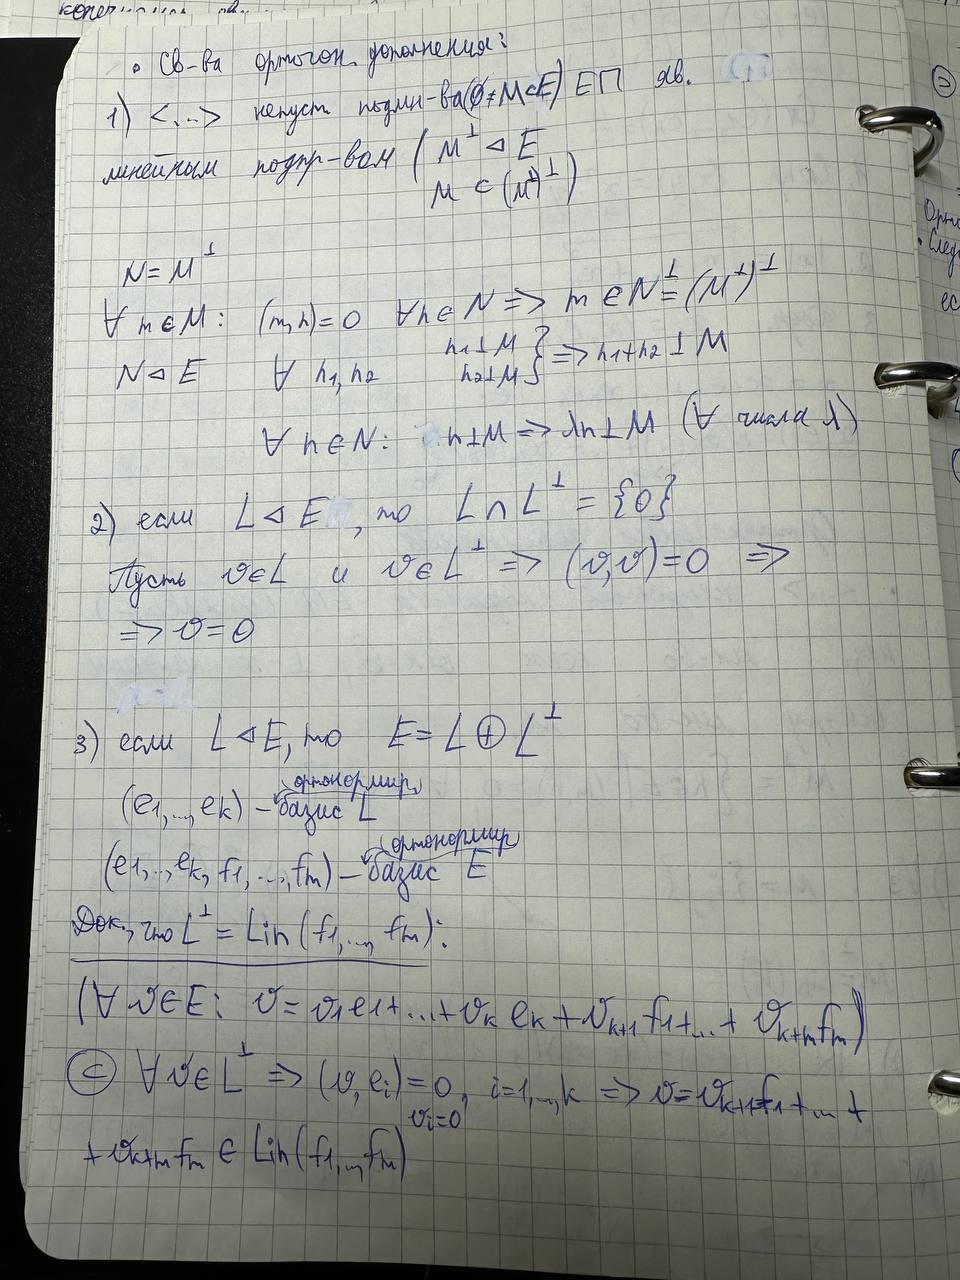 • Св-ва ортогон. дополнения:
1) <...> непуст подмн-ва (∅≠M⊂E) ЕП яв.
линейным подпр-вом ( M^⊥ ⊲ E
M ⊂ (M^⊥)^⊥ )
N = M^⊥
∀ m∈M: (m,n)=0 ∀n∈N => m∈N^⊥=(M^⊥)^⊥
N ⊲ E ∀ n1,n2 n1⊥M n2⊥M } => n1+n2 ⊥ M
∀ n∈N: n⊥M => λn⊥M (∀ числа λ)
2) если L ⊲ E, то L∩L^⊥ = {0}
Пусть v∈L и v∈L^⊥ => (v,v)=0 =>
=> v=0
3) если L⊲E, то E = L ⊕ L^⊥
ортонормир.
(e1,..,ek) – базис L
ортонормир
(e1,..,ek, f1,..,fm) – базис E
Док., что L^⊥ = Lin(f1,.., fm):
(∀ v∈E: v = v1e1+...+vk ek + vk+1 f1+..+ vk+m fm)
⊂ ∀ v∈L^⊥ => (v,ei)=0, i=1,..,k => v=vk+1f1+..+
vi=0
+ vk+m fm ∈ Lin(f1,..,fm)